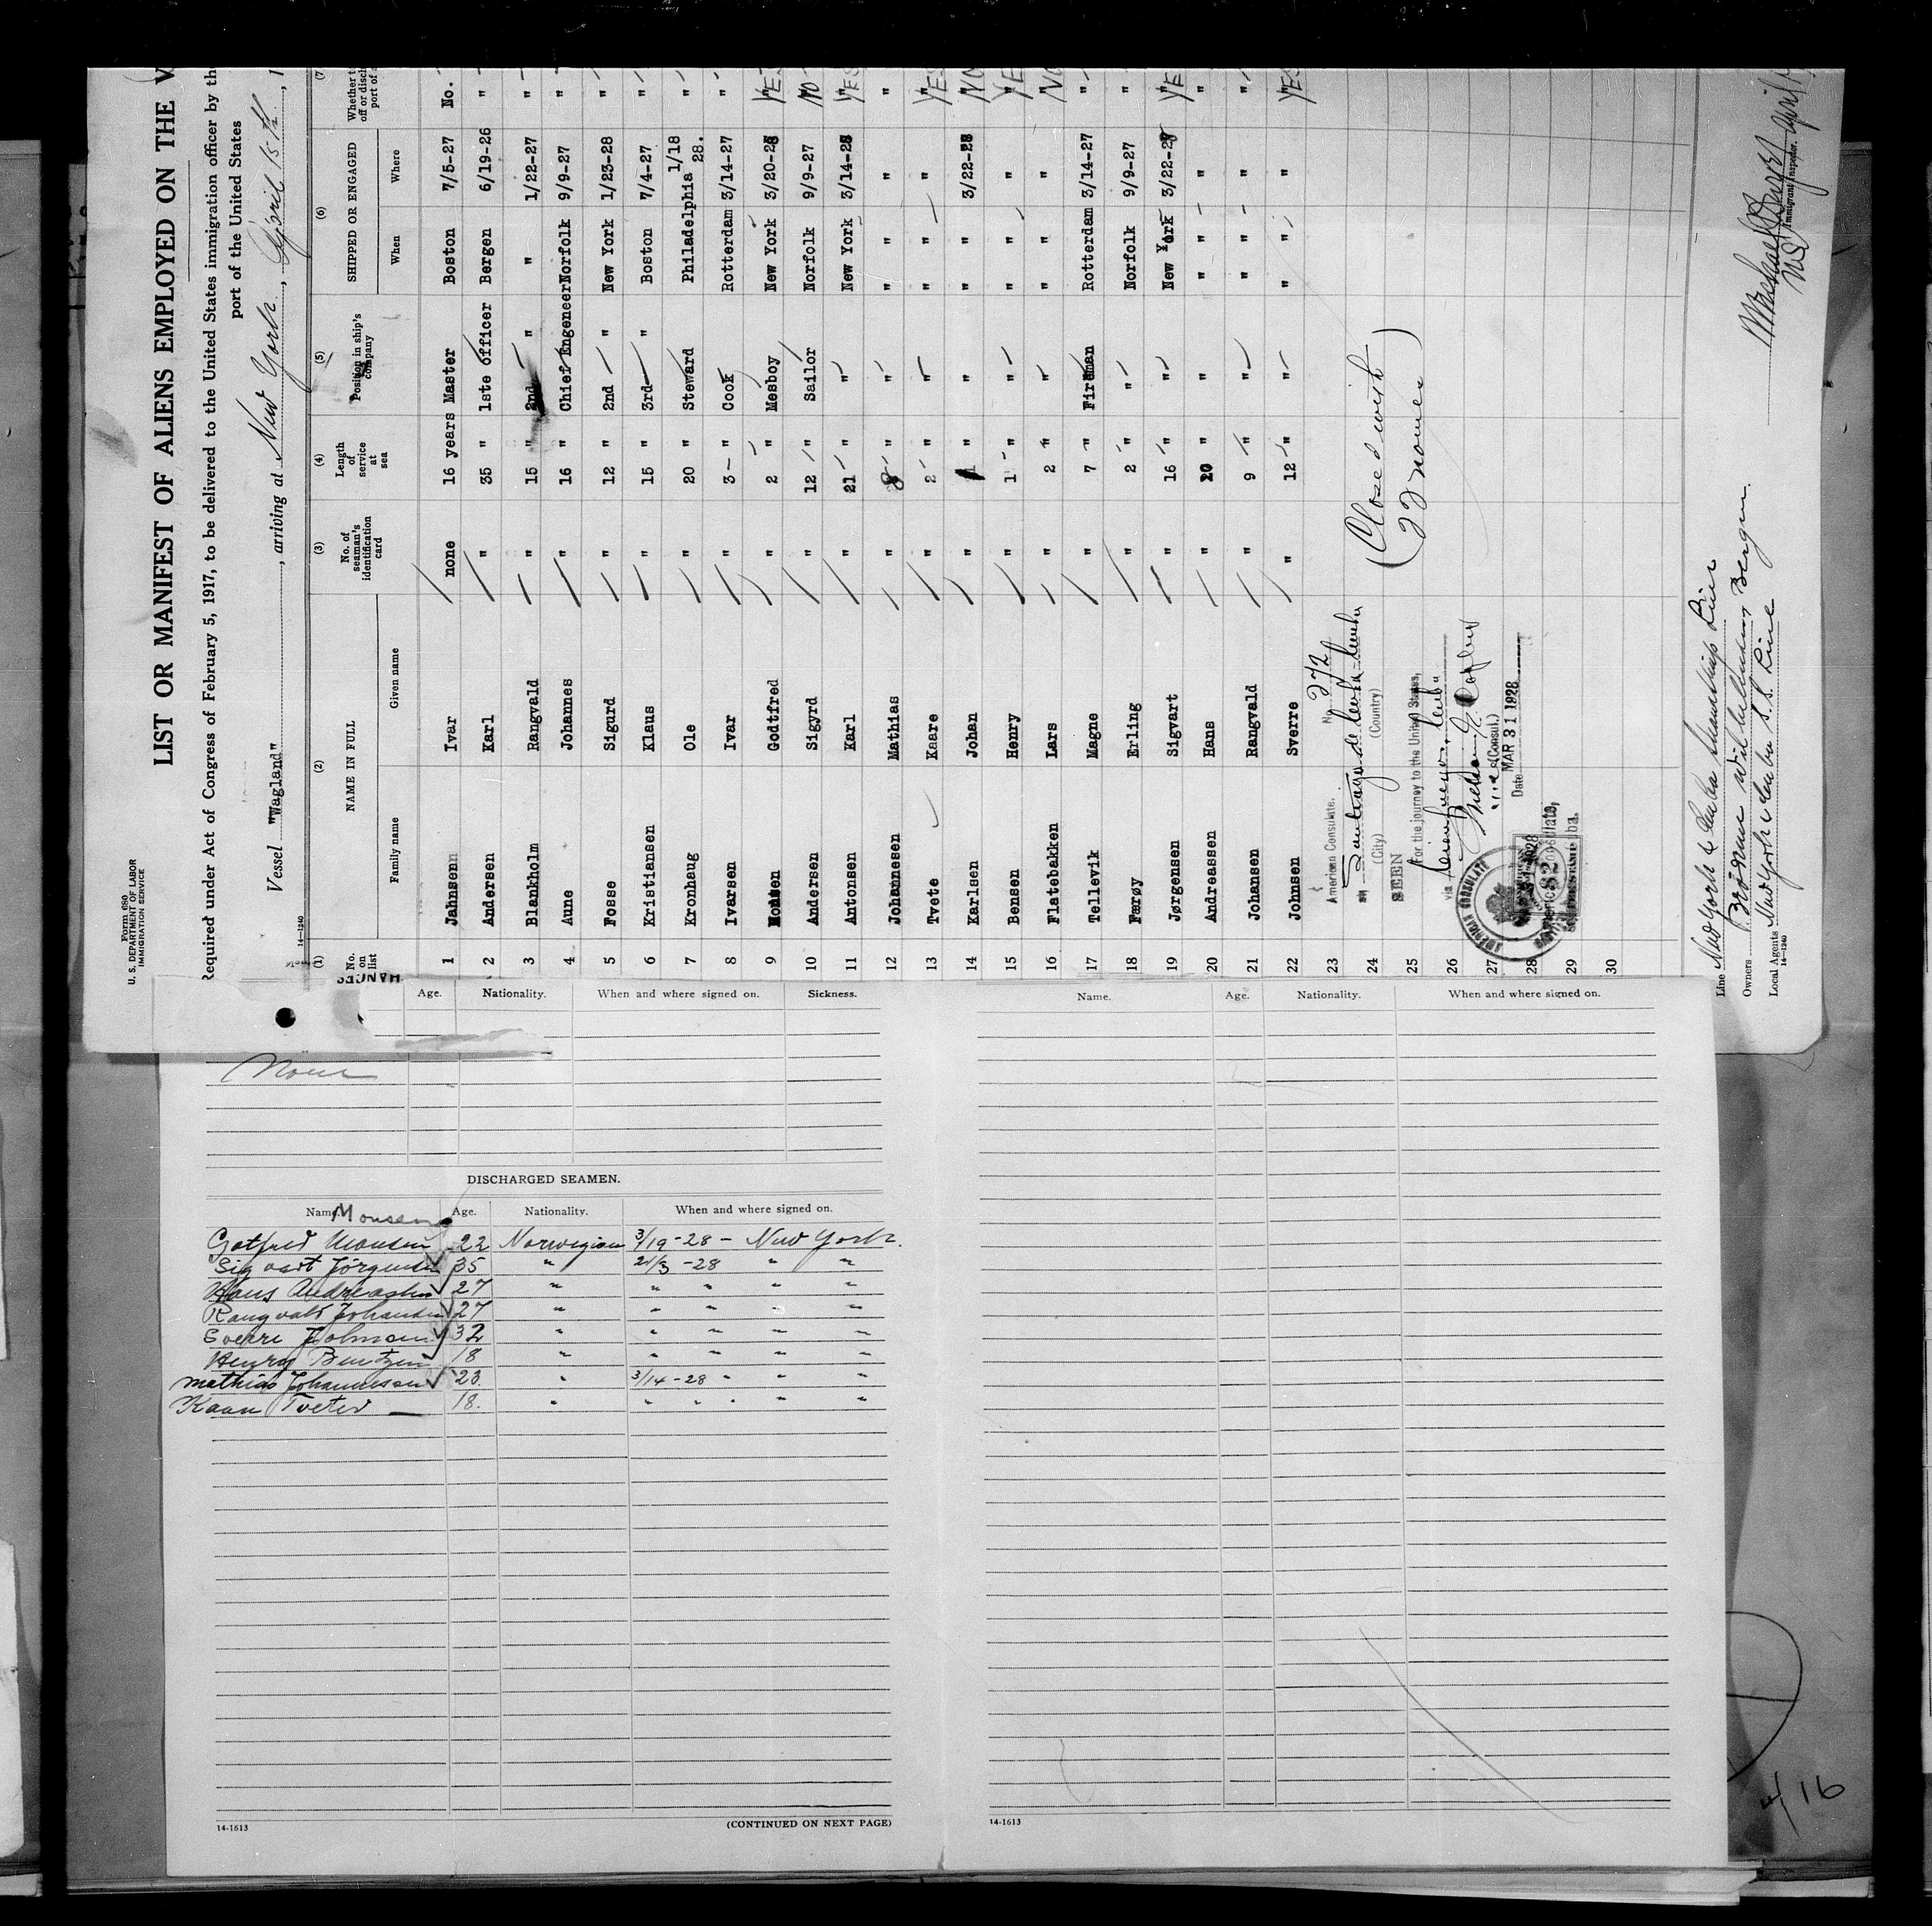 Form 680
U. S. DEPARTMENT OF LABOR
IMMIGRATION SERVICE
LIST OR MANIFEST OF ALIENS EMPLOYED ON THE V
Required under Act of Congress of February 5, 1917, to be delivered to the United States immigration officer by th
port of the United States
Vessel "Wagland", arriving at New York, April 15th, 1
14-1240
(1) (2) (3) (4) (5) (6) (7)
No. on list NAME IN FULL No. of seaman's identification card Length of service at sea Position in ship's company SHIPPED OR ENGAGED Whether t off or disch port of a
Family name Given name When Where
1 Jahnsenn Ivar none 16 years Master Boston 7/5-27 No.
2 Andersen Karl " 35 " 1ste Officer Bergen 6/19-26 "
3 Blankholm Rangvald " 15 " 2nd " " 1/22-27 "
4 Aune Johannes " 16 " Chief Engeneer Norfolk 9/9-27 "
5 Fosse Sigurd " 12 " 2nd " New York 1/23-28 "
6 Kristiansen Klaus " 15 " 3rd " Boston 7/4-27 "
7 Kronhaug Ole " 20 " Steward Philadelphia 1/18 28. "
8 Ivarsen Ivar " 3 " Cook Rotterdam 3/14-27 "
9 Godtfred " 2 " Mesboy New York 3/20-28 YES
10 Andersen Sigyrd " 12 " Sailor Norfolk 9/9-27 NO
11 Antonsen Karl " 21 " " New York 3/14-28 YES
12 Johannesen Mathias " 8 " " " " "
13 Tvete Kaare " 2 " " " " YES
14 Karlsen Johan " 1 " " " 3/22-28 NO
15 Bensen Henry " 1 " " " " YE
16 Flatebakken Lars " 2 " " " " NO
17 Tellevik Magne " 7 " Fireman Rotterdam 3/14-27 "
18 Færøy Erling " 2 " " Norfolk 9/9-27 "
19 Jørgensen Sigvart " 16 " " New York 3/22-28 YE
20 Andreassen Hans " 20 " " " " "
21 Johansen Rangvald " 9 " " " " "
22 Johnsen Sverre " 12 " " " " YES
23 American Consulate. No. 272
24 at Santiago de Cuba Cuba
(City) (Country)
25 SEEN For the journey to the United States,
26 via Cienfuegos, Cuba
27 Vice (Consul.)
28 Date MAR 31 1928
29
30
(Closed with
22 names)
AMERICAN CONSULATE
Line New York & Cuba Steamship Line
Owners Wilhelmsen Bergen.
Local Agents New York & Cuba S. S. Line
14-1240
Immigrant Inspector. April 1
HANGES
Age. Nationality. When and where signed on. Sickness.
None
DISCHARGED SEAMEN.
Name. Age. Nationality. When and where signed on.
Monsen
Gotfred Monsen 22 Norwegian 3/19-28 - New York.
Sigvart Jörgensen 35 " 21/3-28 " "
Hans Andreassen 27 " " " " "
Rangvald Johansen 27 " " " " "
Sverre Johnsen 32 " " " " "
Henry Bentzen 18 " " " " "
Mathias Johannessen 23. " 3/14-28 " " "
Kaare Tveter 18. " " " " " "
14-1613
(CONTINUED ON NEXT PAGE)
Name. Age. Nationality. When and where signed on.
14-1613
4/16